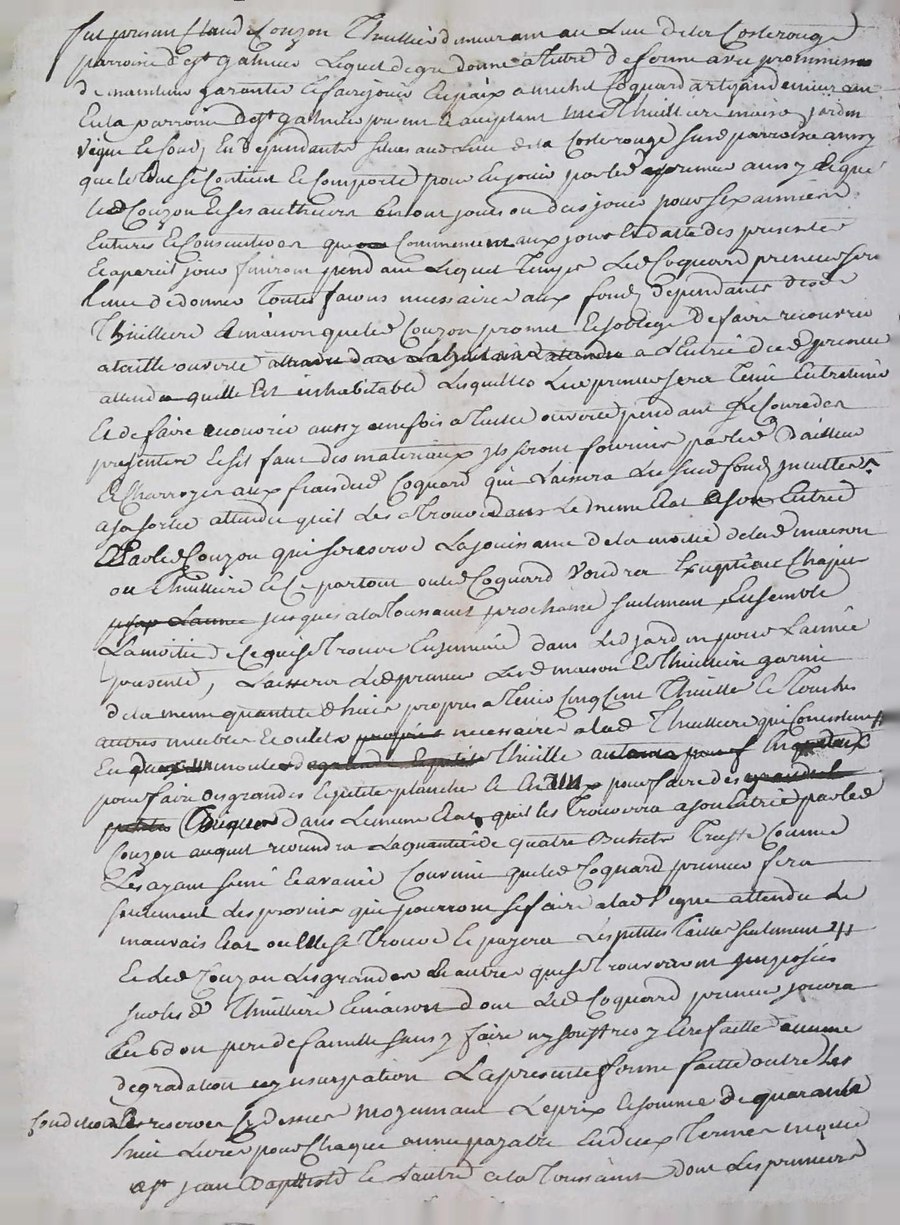 fut present Claude Couzon Thuillier demeurant au lieu de la Costerouge
parroisse d'est galmier lequel de gre donne a titre de ferme avec promesse
de maintenir garantir et faire jouir en paix a michel Coquard artizan demeurant
en la parroisse dest galmier present et aceptant une Thuilliere maison jardin
vigne et fond en dependants situes aud lieu de la Costerouge susd parroisse ainsy
que le tout se Contient et Comporte pour en jouir par led preneur ainsy et que
led Couzon et ses autheurs en ont jouis ou deu jouir pour six années
futures et Consecutives que Commencent aux jour et datte des presentes
et a pareil jour finiront pendant lequel temps led Coquard preneur sera
tenu de donner toutes façons necessaires aux fonds dependants de lade
Thuilliere et maison que led Couzon promet et soblige de faire recouvrir
a taille ouverte a l'entrée dud preneur
attendu quelle est inhabitable lesquelles led preneur sera tenu entretenir
et de faire recouvrir aussy une fois a taille ouverte pendant le Cours des
presentes et sil faut des materiaux ils seront fournis par led bailleur
et Charroyes aux frais dud Coquard qui laissera les susd fonds incultes
a sa sortie attendu quil les trouve dans le meme etat a son entrée
par led Couzon qui se reserve la jouissance de la moitié de lad maison
ou Thuilliere et ce partout ou led Coquard voudra Excepté au Chapit
jusques a la toussaint prochaine seulement Ensemble
la moitié de ce que se trouve Ensemencé dans led jardin pour l'année
presente, laissera led preneur led maison et Thuilliere garnie
de la meme quantité d'hais propres a tenir Cinq Cent Thuille et touttes
autres meubles et outils necessaires a lad Thuilliere qui Consistent
En moules Thuille
pour faire des grandes et petites planches et un pour faire des
dans le meme etat quil les trouvera a son entrée par led
Couzon auquel reviendra la quantité de quatre bichets Trufle Comme
les ayant semé et avancé Convenu que led Coquard preneur fera
seulement des provins qui pourront se faire a lad vigne attendu le
mauvais etat ou elle se trouve et payera les petites tailles seulement
et led Couzon les grandes et autres que se trouveront imposées
sur lesd Thuilliere et maison dont led Coquard preneur jouira
en bon pere de famille sans y faire ny souffrir y etre faitte aucune
degradation ny usurpation la presente ferme faitte outre les
Conditions et reserves Cy dessus moyennant le prix et somme de quarante
huit livres pour Chaque année payable en deux termes moitié
a st jean Baptiste et l'autre a la toussaint dont les premiers